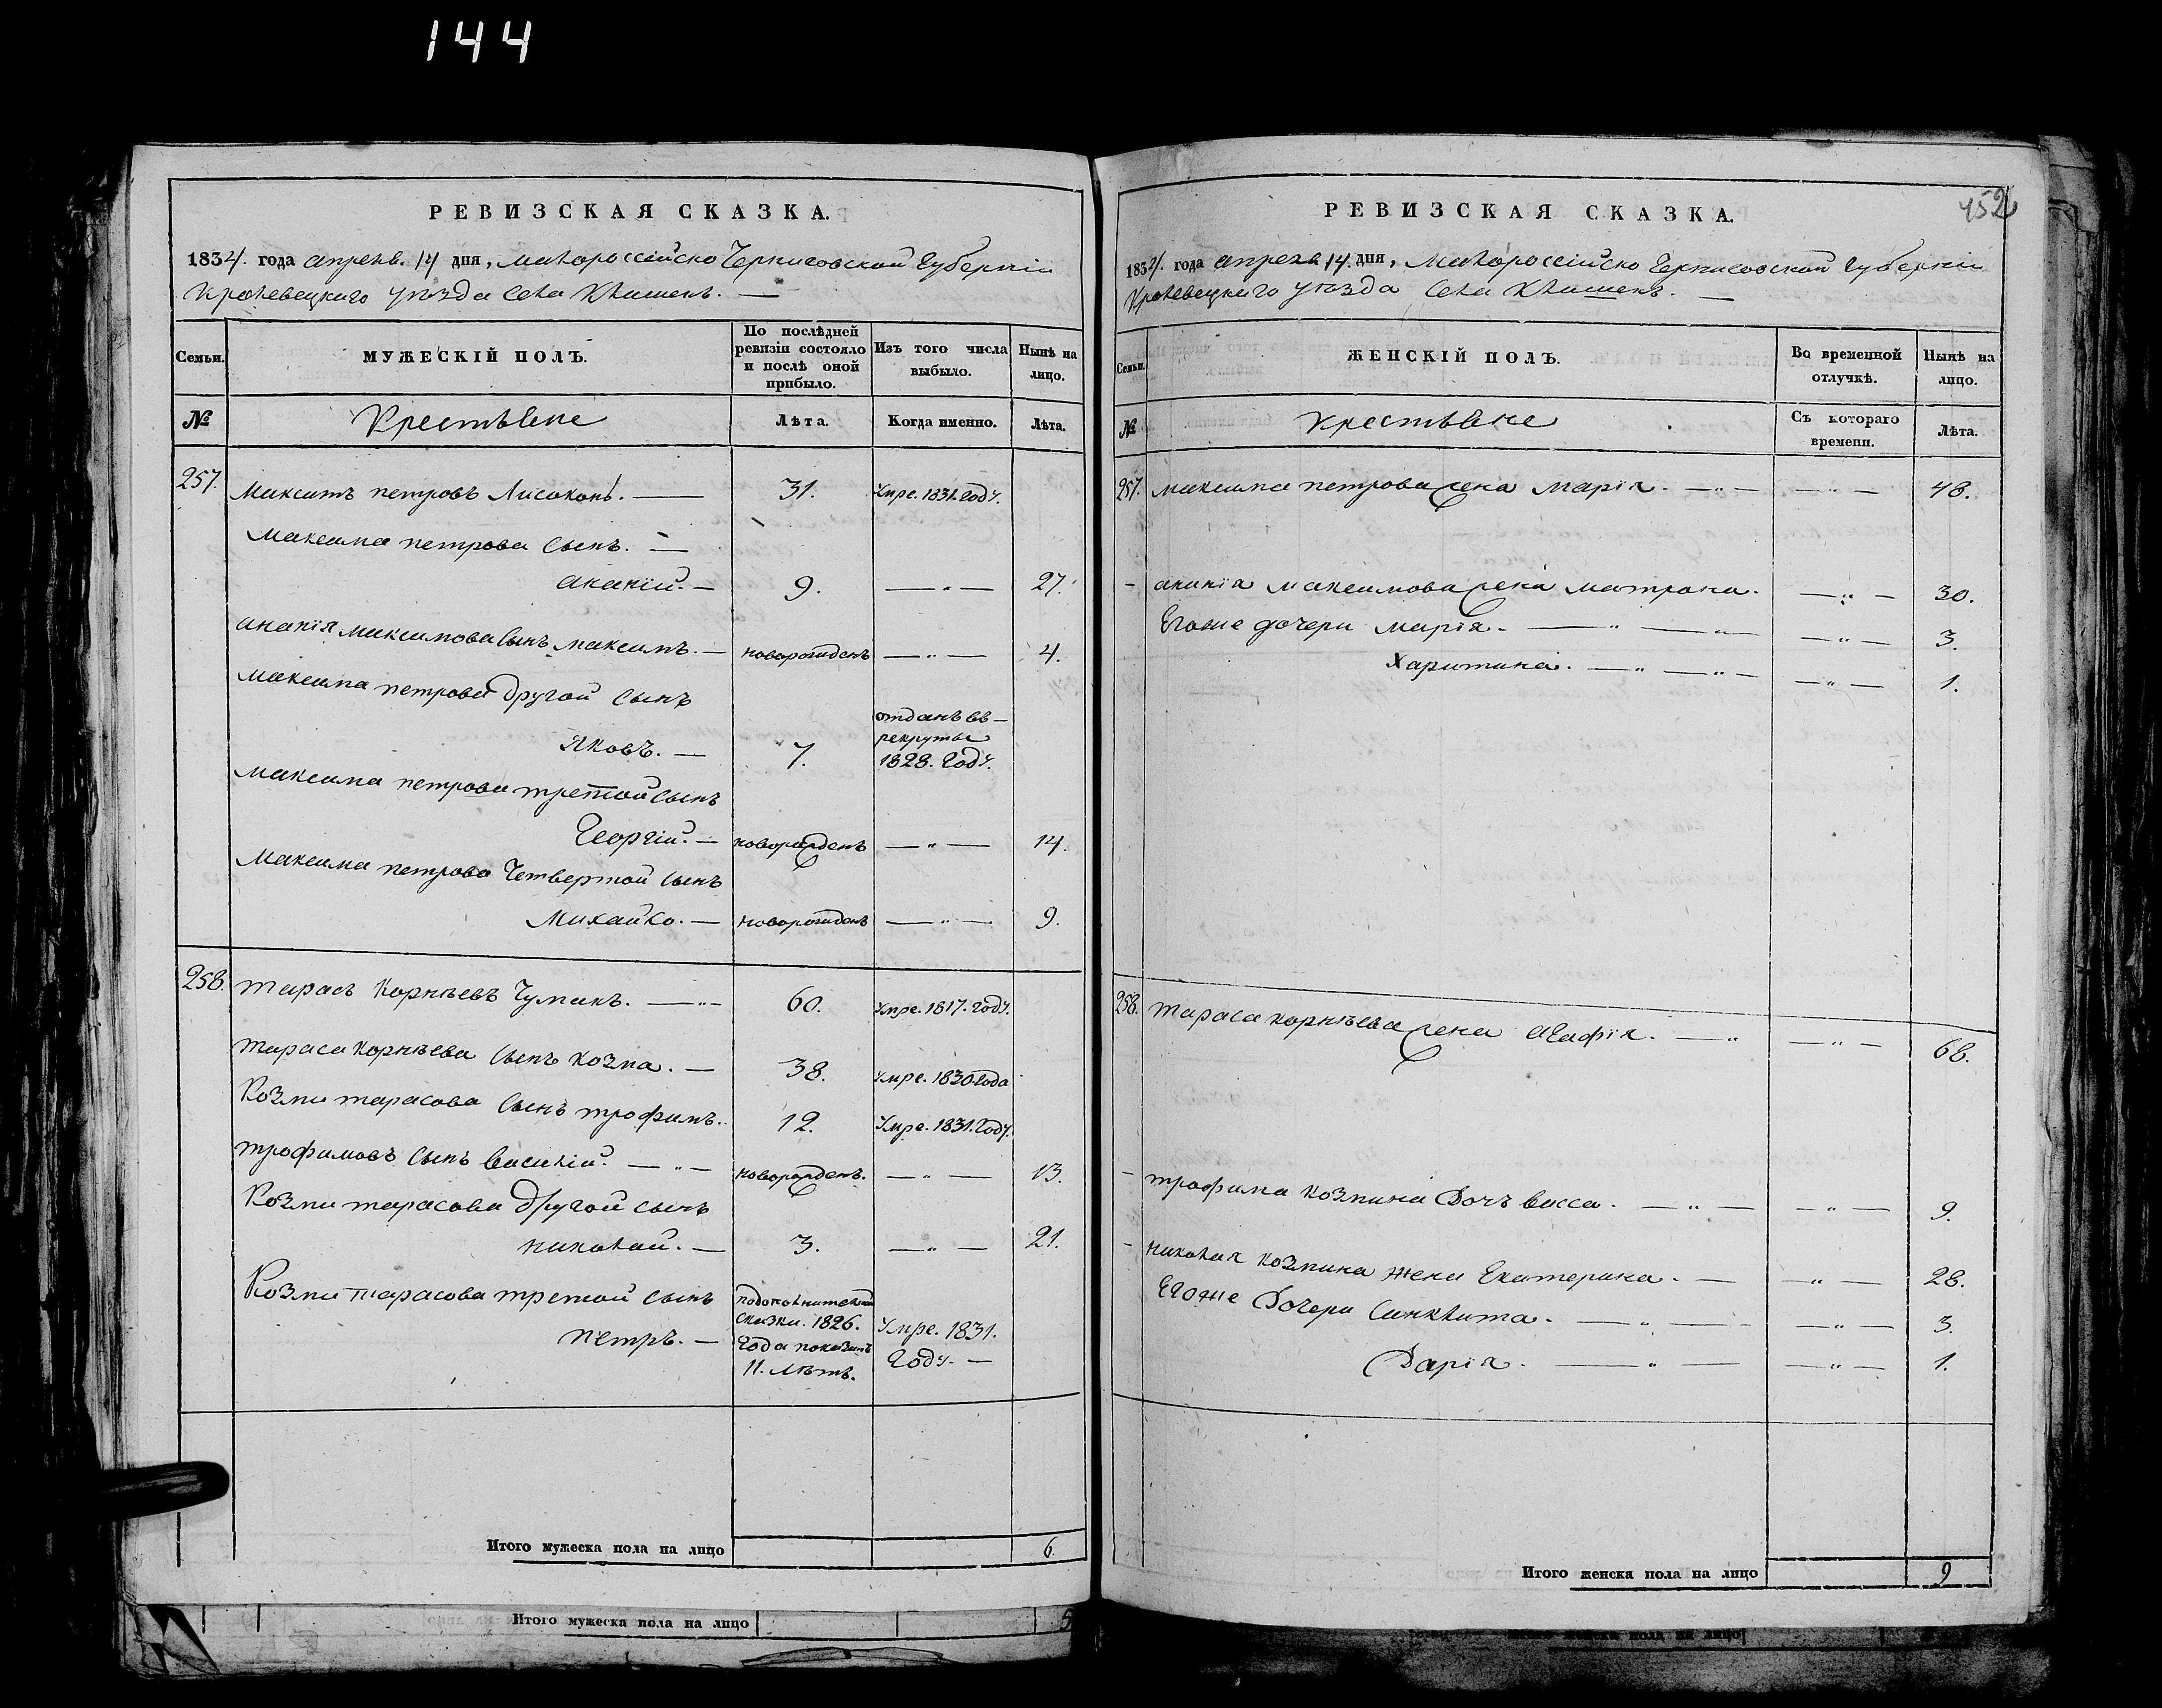 144
РЕВИЗСКАЯ СКАЗКА.
1834. года апреля. 14 дня, Малороссійско Черниговской Губерніи
Кролевецкаго уѣзда Села Клишекъ. —
Семьи.
МУЖЕСКІЙ ПОЛЪ.
По послѣдней ревизіи состояло и послѣ оной прибыло.
Изъ того числа выбыло.
Нынѣ на лицо.
№
Крестьяне
Лѣта.
Когда именно.
Лѣта.
257. Максимъ петровъ Лисоконь. — 31. умре. 1831. Году.
Максима петрова Сынъ. —
Ананій. — 9. — " — 27.
Ананія Максимова Сынъ Максимъ. — новорожденъ — " — 4.
Максима петрова Другой Сынъ
Яковъ. — 7. отданъ въ — рекруты 1828. Году.
Максима петрова третой Сынъ
Георгій. — новорожденъ — " — 14.
Максима петрова Четвертой Сынъ
Михайло. — новорожденъ — " — 9.
258. Тарасъ Корнѣевъ Чумакъ. — " — 60. умре. 1817. году.
Тараса Корнѣева Сынъ Козма. — 38. умре. 1830 Года
Козми тарасова Сынъ трофимъ. 12. Умре. 1831. Году.
трофимовъ Сынъ Василій. — " — новорожденъ. — " — 13.
Козми тарасова Другой сынъ
николай. — 3. — " — 21.
Козми тарасова третой сынъ
петръ. — подополнителной Сказки. 1826. Года показанъ 11. Лѣтъ. Умре. 1831. Году. —
Итого мужеска пола на лицо 6.
Итого мужеска пола на лицо 5
452
РЕВИЗСКАЯ СКАЗКА.
1834. года апреля 14. дня, Малороссійско Черниговской Губерніи
Кролевецкаго уѣзда Села Клишекъ. —
Семьи.
ЖЕНСКІЙ ПОЛЪ.
Во временной отлучкѣ.
Нынѣ на лицо.
№
Крестьяне
Съ котораго времени.
Лѣта.
257. Максима петрова жена Марія. — " — — " — 48.
- Ананія Максимова жена Матрона. — " — 30.
Егоже дочери Марія. — " — " — — " — 3.
Харитина. — " — " — — " — 1.
258. Тараса Корнѣева жена Агафія. — " — " — 68.
- трофима Козмина Дочъ Васса. — " — — " — 9.
- николая Козмина жена Екатерина. — — " — 28.
Егоже Дочери Синклита. — " — — " — 3.
Дарія. — " — — " — 1.
Итого женска пола на лицо 9